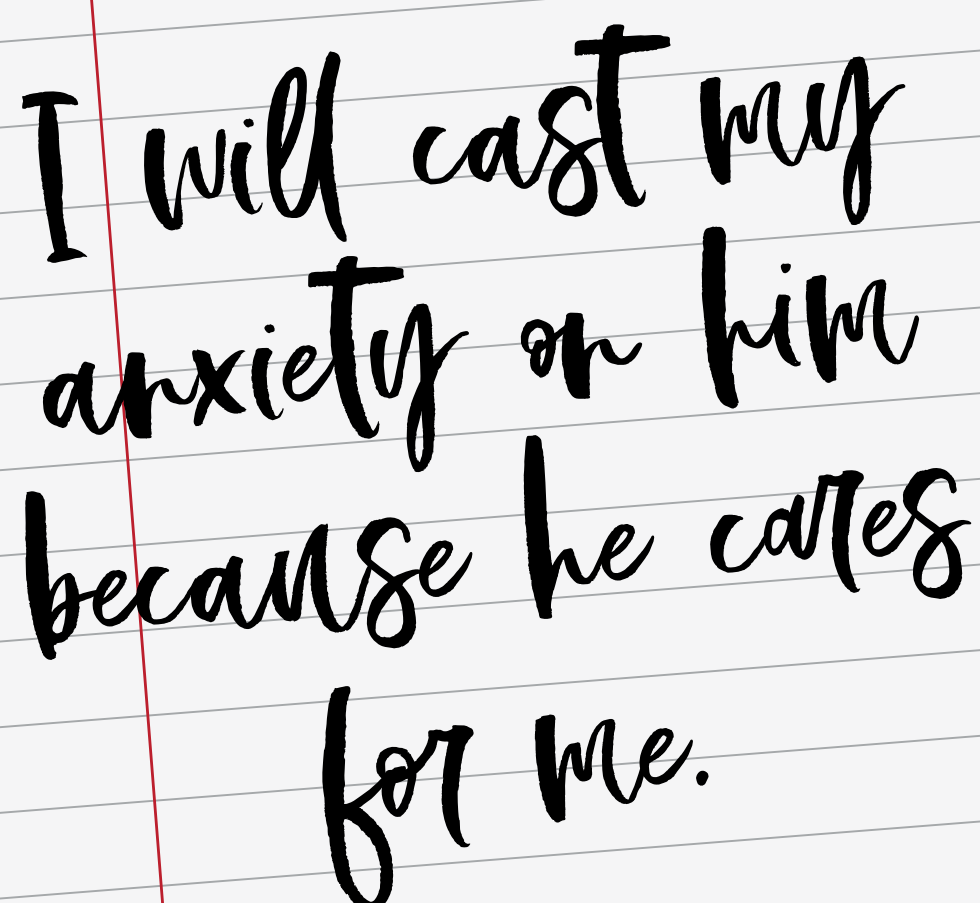 I will cast my
anxiety on him
because he cares
for me.